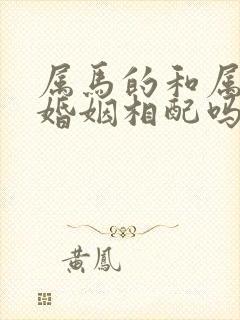 属马的和属
婚姻相配吗
黄凤